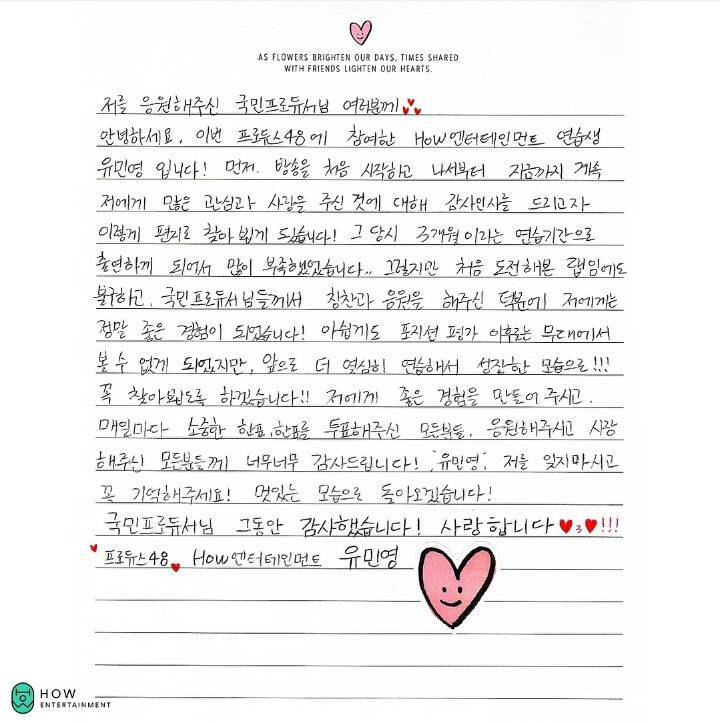 AS FLOWERS BRIGHTEN OUR DAYS, TIMES SHARED
WITH FRIENDS LIGHTEN OUR HEARTS.
저를 응원해주신 국민프로듀서님 여러분께
안녕하세요, 이번 프로듀스48에 참여한 How엔터테인먼트 연습생
유민영 입니다! 먼저. 방송을 처음 시작하고 나서부터 지금까지 계속
저에게 많은 관심과 사랑을 주신 것에 대해 감사인사를 드리고자
이렇게 편지로 찾아 뵙게 되었습니다! 그 당시 3개월이라는 연습기간으로
출연하게 되어서 많이 부족했었습니다.. 그렇지만 처음 도전해본 랩임에도
불구하고, 국민프로듀서님들께서 칭찬과 응원을 해주신 덕분에 저에게는
정말 좋은 경험이 되었습니다! 아쉽게도 포지션 평가 이후로는 무대에서
볼 수 없게 되었지만, 앞으로 더 열심히 연습해서 성장한 모습으로!!!
꼭 찾아뵙도록 하겠습니다!! 저에게 좋은 경험을 만들어 주시고.
매일마다 소중한 한표, 한표를 투표해주신 모든분들, 응원해주시고 사랑
해주신 모든분들께 너무너무 감사드립니다! '유민영' 저를 잊지마시고
꼭 기억해주세요! 멋있는 모습으로 돌아오겠습니다!
국민프로듀서님 그동안 감사했습니다! 사랑합니다♥3♥!!!
프로듀스48 How엔터테인먼트 유민영
HOW
ENTERTAINMENT